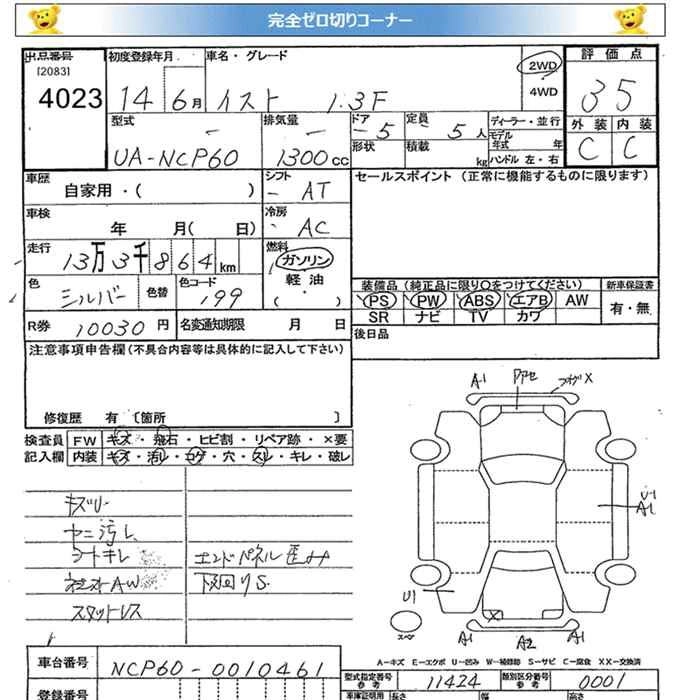 完全ゼロ切りコーナー
出品番号 初度登録年月 車名・グレード 2WD 評価点
[2083] 4WD
4023 14年6月 イスト 1.3F 35
型式 排気量 ドア 定員 ディーラー・並行 外装 内装
UA-NCP60 1300cc 5 5人 モデル年式 年 C C
形状 積載 kg ハンドル 左・右
車歴 シフト セールスポイント (正常に機能するものに限ります)
自家用・( ) AT
車検 冷房
年 月( 日) AC
走行 燃料
13万3千864km ガソリン
色 色替 色コード 軽油 装備品 (純正品に限り〇をつけてください) 新車保証書
シルバー 199 ( ) PS PW ABS エアB AW 有・無
R券 10030円 名変通知期限 月 日 SR ナビ TV カワ
注意事項申告欄(不具合内容等は具体的に記入して下さい) 後日品
修復歴 有 〔箇所 〕
検査員 FW キズ・飛石・ヒビ割・リペア跡・×要
記入欄 内装 キズ・汚レ・コゲ・穴・スレ・キレ・破レ
A1 X
U1 A1
キズU
ヤニ汚レ
シートキレ エンドパネル歪み
AW 下廻りS
スタットレス
U1 X
スペア A1 A2 A1
A-キズ E-エクボ U-凹み W-補修跡 S-サビ C-腐食 XX-交換済
車台番号 NCP60-0010461 型式指定番号 参考 11424 類別区分番号 参考 0001
登録番号 車庫証明用 長さ 幅 高さ